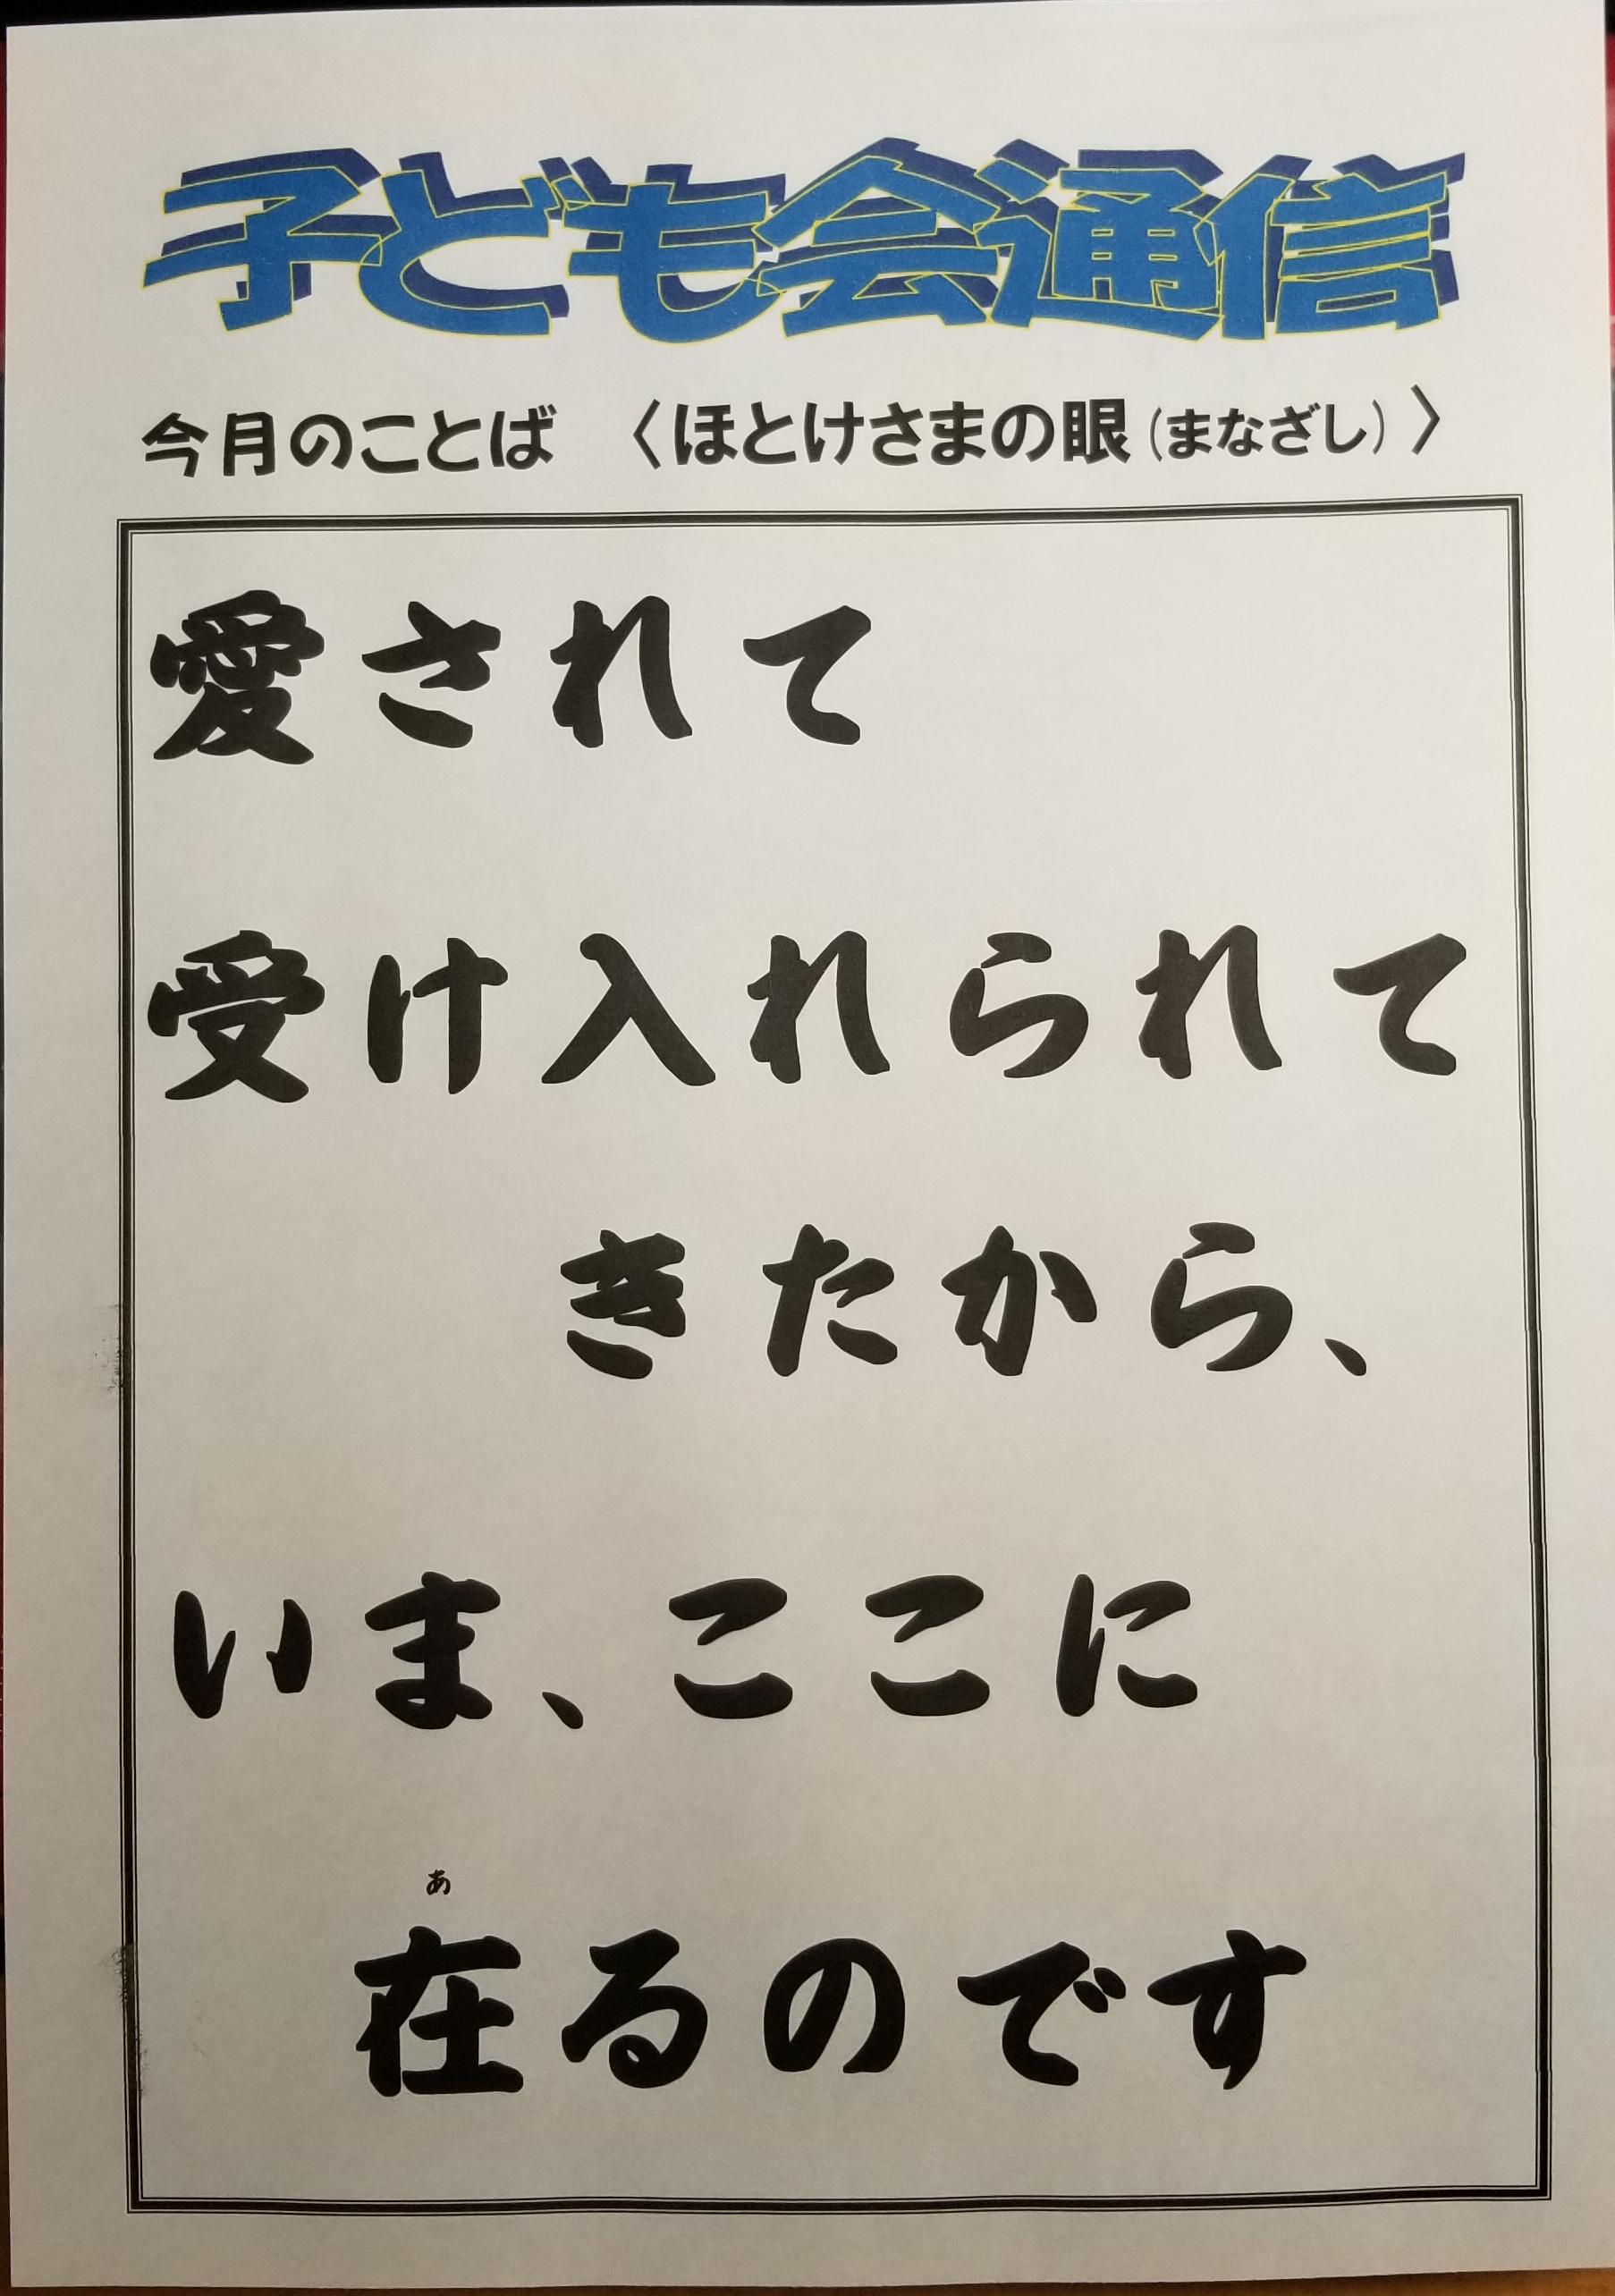 子ども会通信
今月のことば　〈ほとけさまの眼(まなざし)〉
愛されて
受け入れられて
きたから、
いま、ここに
あ
在るのです